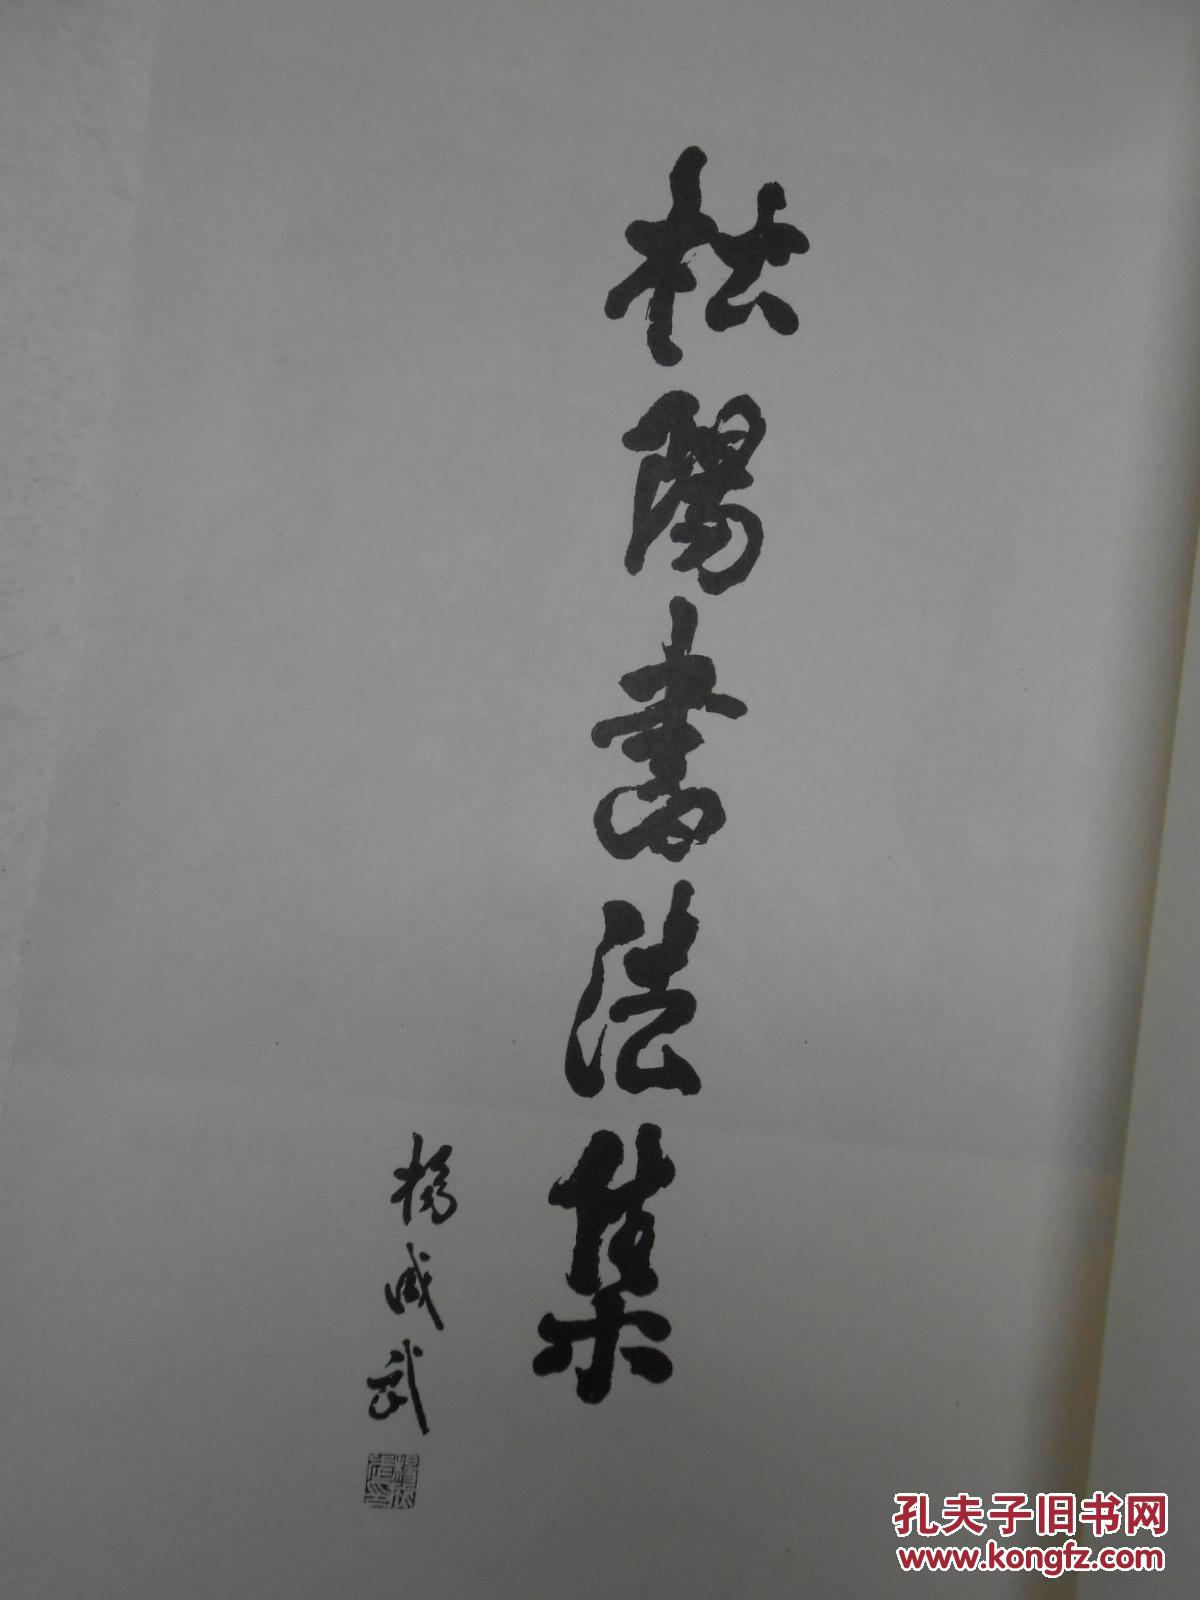 松陽書法集
楊成武
孔夫子旧书网
www.kongfz.com